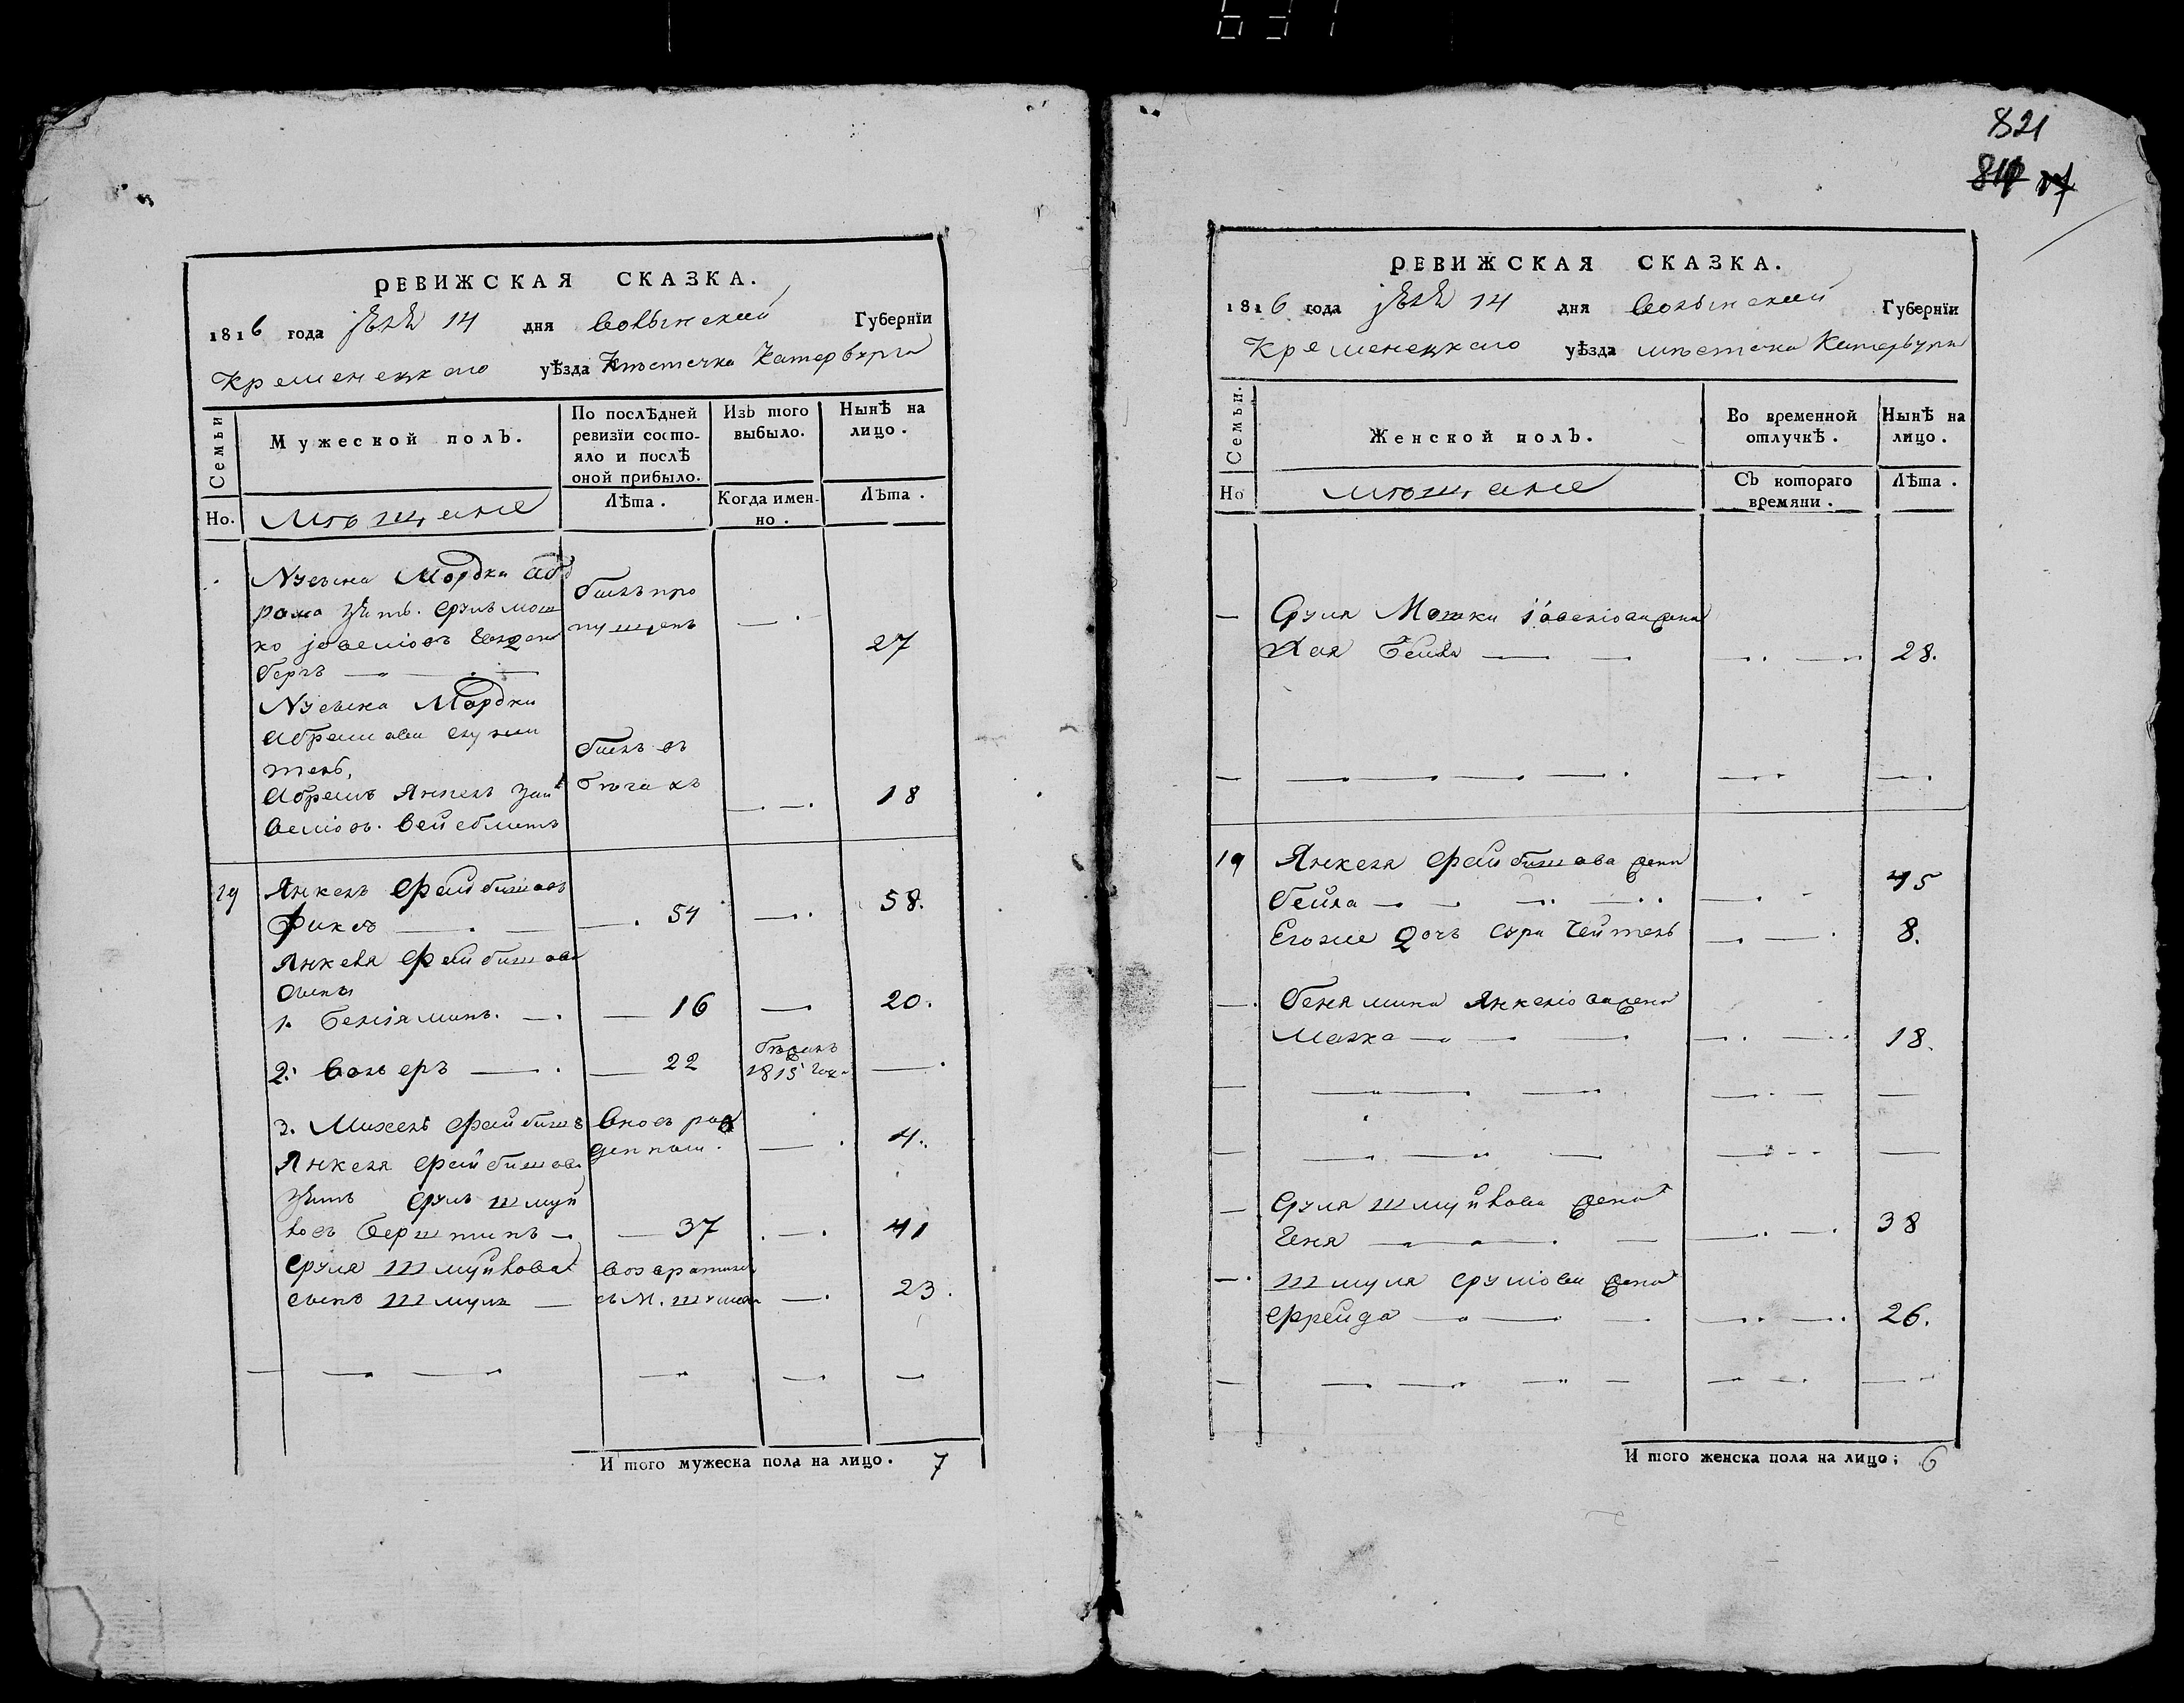 631
РЕВИЖСКАЯ СКАЗКА.
1816 года 14 дня Волынской Губернїи
Кременецкаго уѣзда Мѣстечка Катербурга
Семьи
Мужеской полъ.
По послѣдней ревизїи состо-
яло и послѣ
оной прибыло.
Изъ того
выбыло.
Нынѣ на
лицо.
Но.
Мѣщане
Лѣта.
Когда имен-
но.
Лѣта.
Мордки Аб
рама зять. Сруль Мош
ко
бергъ
былъ про
пущенъ
27
Мордки
Абрамова служи
тель,
Абрамъ Янкель
былъ въ
бѣгахъ
18
19 Янкель Файбишовъ
Фиксъ 54 58.
Янкеля Файбишова
сынъ
1. Беніяминъ. 16 20.
2. Волъеръ 22
бѣжалъ
1815 года
3. Михель Файбишъ
вновь рож
денный. 4.
Янкеля Файбишова
зять Сруль Шмуй
ловъ Берштинъ 37 41
Сруля Шмуйлова
сынъ Шмуль
возвратился
съ М. 23.
И того мужеска пола на лицо. 7
821
РЕВИЖСКАЯ СКАЗКА.
1816 года 14 дня Волынской Губернїи
Кременецкаго уѣзда мѣстечка Катербурга
Семьи.
Женской полъ.
Во временной
отлучкѣ.
Нынѣ на
лицо.
Но
Мѣщане
Съ котораго
времяни.
Лѣта.
Сруля Мошки жена
Хая Бейла 28.
19 Янкеля Файбишова жена
Бейла 45
Егоже дочь Сура Чейтель 8.
Бенямина Янкеліова жена
Малка 18.
Сруля Шмуйлова жена
Геня 38
Шмуля Сруліова жена
Фрейда 26.
И того женска пола на лицо; 6